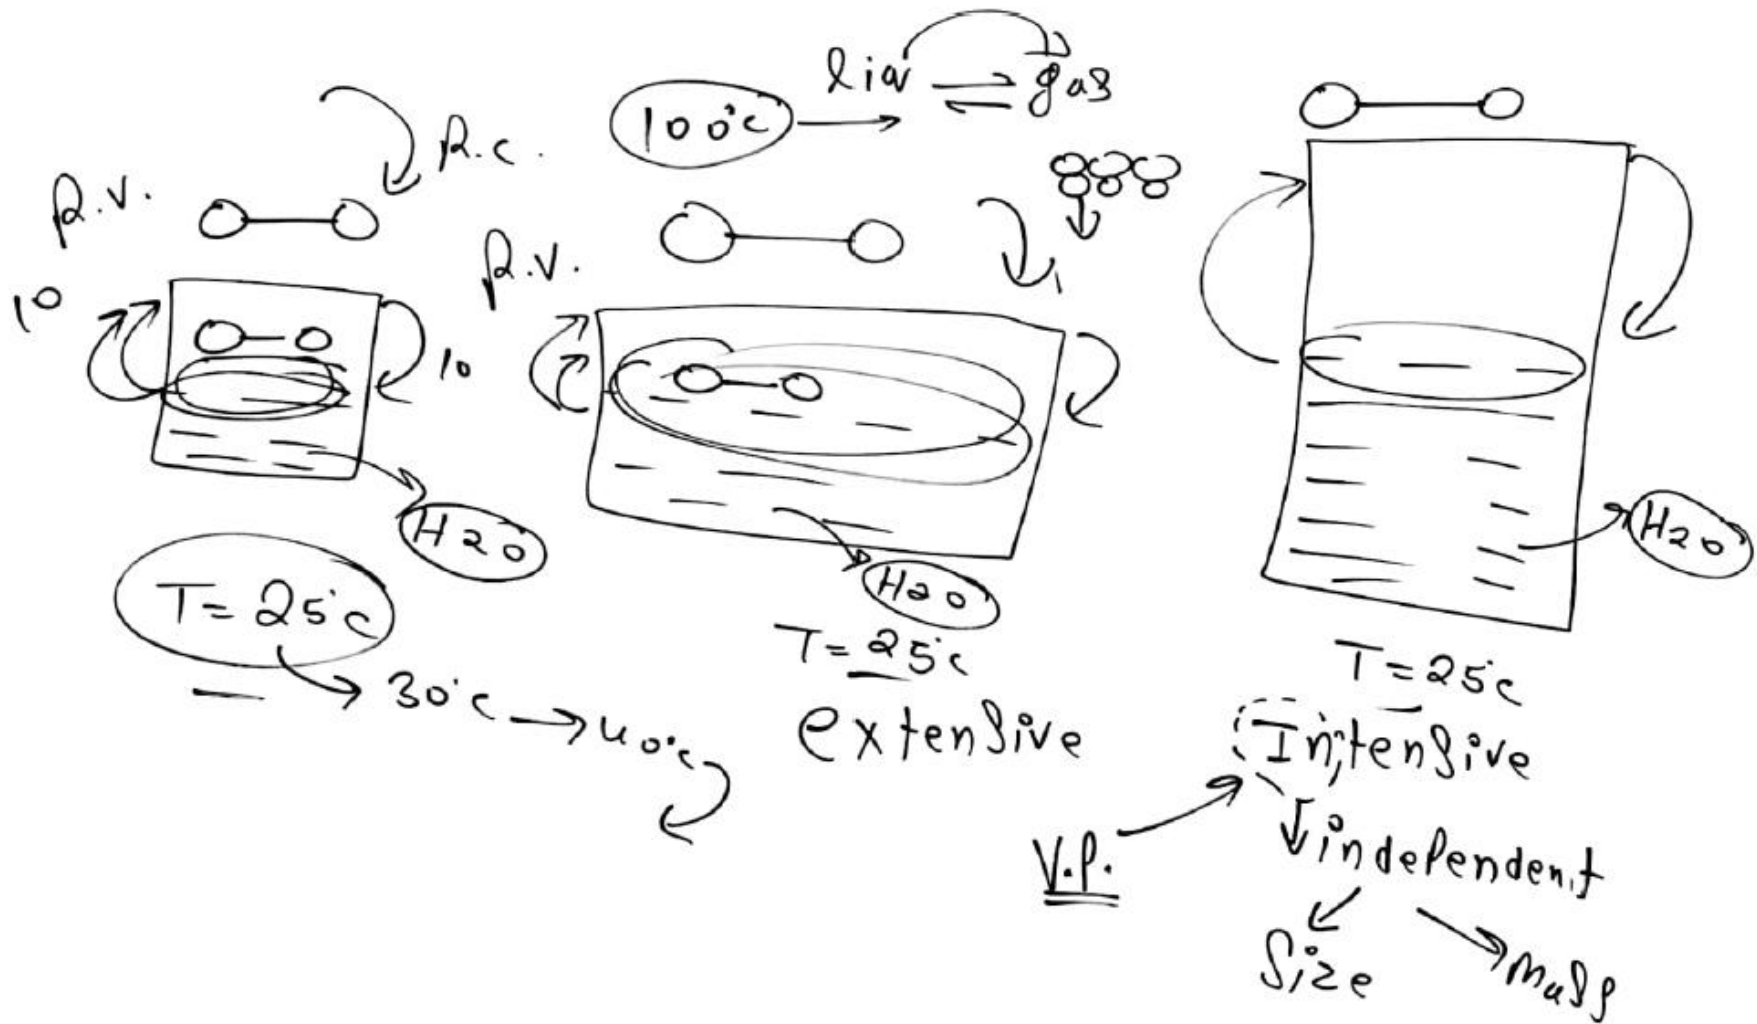 liq ⇌ gas
100°c →
R.c.
R.v.
R.v.
10
10
H2O
H2O
H2O
T = 25°c
T = 25°c
T = 25°c
→ 30°c → 40°c
extensive
Intensive
V.P.
independent
Size
mass